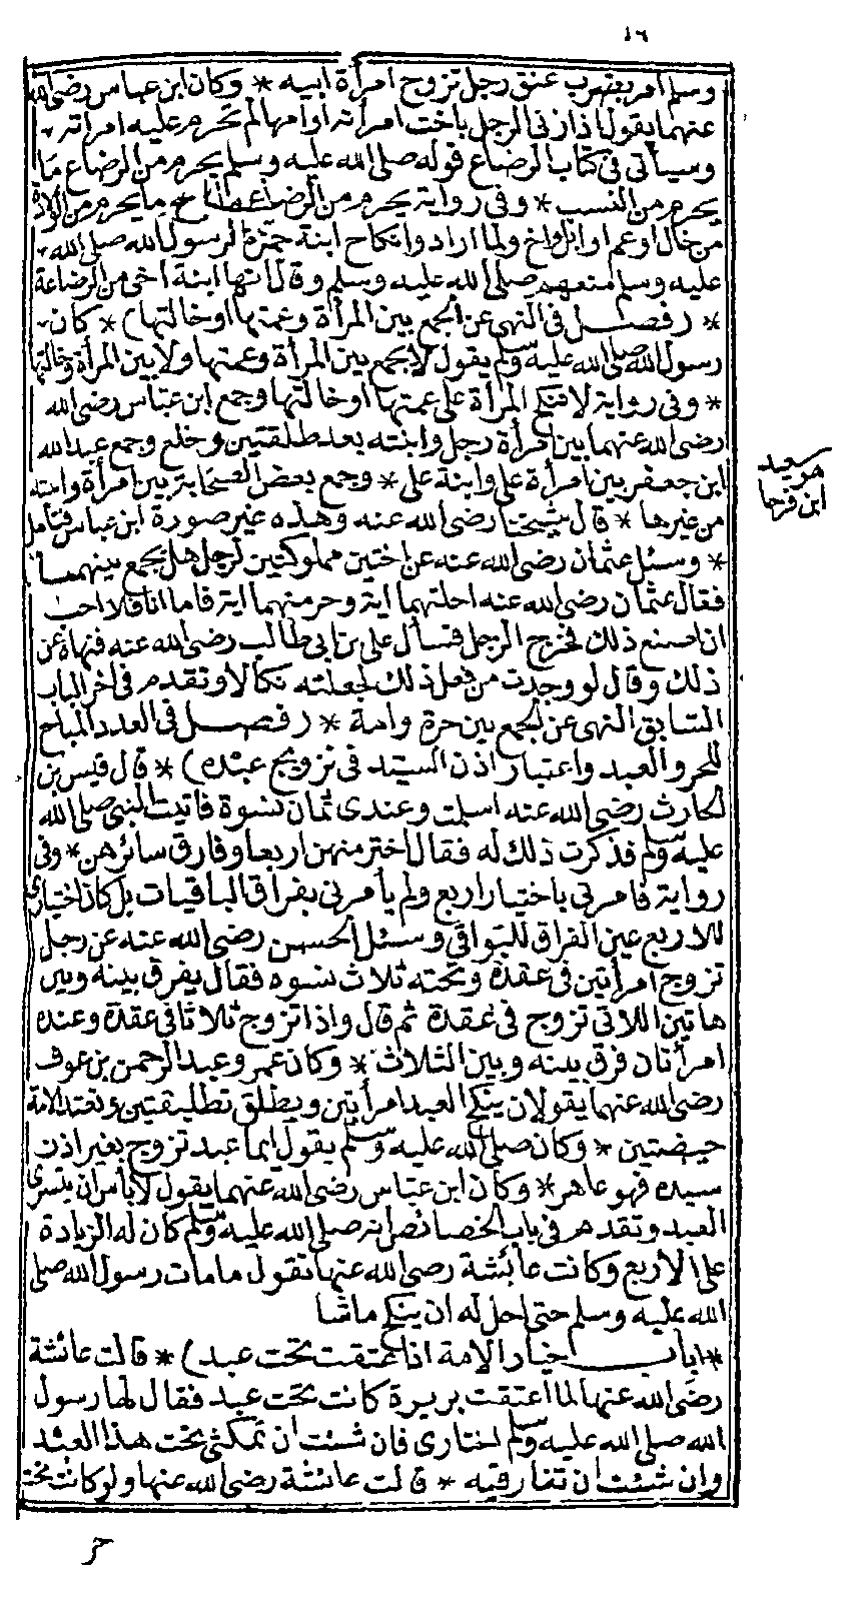 ١٦
وسلم امر بضرب عنق رجل تزوج امرأة ابيه * وكان ابن عباس رضى الله
عنهما يقول اذا زنى الرجل باخت امرأته او امها لم تحرم عليه امراته
وسيأتى فى كتاب الرضاع قوله صلى الله عليه وسلم يحرم من الرضاع ما
يحرم من النسب * وفى رواية يحرم من الرضاعة ما يحرم من الولادة
من خال او عم او ابن اخ ولما ارادوا نكاح ابنة حمزة لرسول الله صلى الله
عليه وسلم منعهم صلى الله عليه وسلم وقال انها ابنة اخى من الرضاعة
* (فصل فى النهى عن الجمع بين المرأة وعمتها او خالتها) * كان
رسول الله صلى الله عليه وسلم يقول لا يجمع بين المرأة وعمتها ولا بين المرأة وخالتها
* وفى رواية لا تنكح المرأة على عمتها او خالتها وجمع ابن عباس رضى الله
رضى الله عنهما بين امرأة رجل وابنته بعد طلقتين وخلع وجمع عبد الله
ابن جعفر بين امرأة على وابنة على * وجمع بعض الصحابة بين امرأة وابنته
من غيرها * قال شيخنا رضى الله عنه وهذه غير صورة ابن عباس فتأمل
* وسئل عثمان رضى الله عنه عن اختين مملوكتين لرجل هل يجمع بينهما
فقال عثمان رضى الله عنه احلتهما اية وحرمتهما اية فاما انا فلا احب
ان اصنع ذلك فخرج الرجل فسأل على بن ابى طالب رضى الله عنه فنهاه عن
ذلك وقال لو وجدت من فعل ذلك لجعلته نكالا وتقدم فى اخر الباب
السابق النهى عن الجمع بين حرة وامة * (فصل فى العدد المباح
للحر والعبد واعتبار اذن السيد فى تزويج عبده) * قال قيس بن
الحارث رضى الله عنه اسلمت وعندى ثمان نسوة فاتيت النبى صلى الله
عليه وسلم فذكرت ذلك له فقال اختر منهن اربعا وفارق سائرهن * وفى
رواية فامرنى باختيار اربع ولم يأمرنى بفراق الباقيات بل كان اختيارى
للاربع عين الفراق للبواقى وسئل الحسن رضى الله عنه عن رجل
تزوج امرأتين فى عقدة وتحته ثلاث نسوه فقال يفرق بينه وبين
هاتين اللاتى تزوج فى عقدة ثم قال واذا تزوج ثلاثا فى عقدة وعنده
امرأتان فرق بينه وبين الثلاث * وكان عمر وعبد الرحمن بن عوف
رضى الله عنهما يقولان ينكح العبد امرأتين ويطلق تطليقتين وتعتد الامة
حيضتين * وكان صلى الله عليه وسلم يقول ايما عبد تزوج بغير اذن
سيده فهو عاهر * وكان ابن عباس رضى الله عنهما يقول لا بأس ان يتسرى
العبد وتقدم فى باب الخصائص انه صلى الله عليه وسلم كان له الزيادة
على الاربع وكانت عائشة رضى الله عنها تقول ما مات رسول الله صلى
الله عليه وسلم حتى احل له ان ينكح ما شا
* (باب خيار الامة اذا عتقت تحت عبد) * قالت عائشة
رضى الله عنها لما اعتقت بريرة كانت تحت عبد فقال لها رسول
الله صلى الله عليه وسلم اختارى فان شئت ان تمكثى تحت هذا العبد
وان شئت ان تفارقيه * قالت عائشة رضى الله عنها ولو كانت تحت
حر